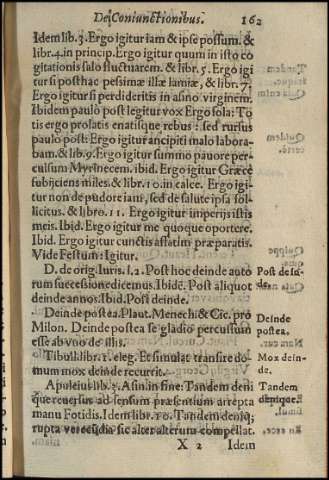 De Coniunctionibus. 162
Idem lib. 3. Ergo igitur iam & ipse possum. &
libr. 4. in princip. Ergo igitur quum in isto co
gitationis salo fluctuarem. & libr. 5. Ergo igi
tur si posthac pessimæ illæ lamiæ, & libr. 7.
Ergo igitur si perdideritis in asino virginem.
Ibidem paulò post legitur vox Ergo sola: To
tis ergo prolatis enatisque rebus: sed rursus
paulo post: Ergo igitur ancipiti malo labora-
bam. & lib. 9. Ergo igitur summo pauore per
culsum Myrmecem. ibid. Ergo igitur Græcè
subijciens miles. & libr. 10. in calce. Ergo igi-
tur non de pudore iam, sed de salute ipsa sol-
licitus. & libro. 11. Ergo igitur imperijs istis
meis. Ibid. Ergo igitur me quoque oportere.
Ibid. Ergo igitur cunctis affatim præparatis.
Vide Festum: Igitur.
D. de orig. Iuris. l. 2. Post hoc deinde auto
rum successione dicemus. Ibidē. Post aliquot
deinde annos. Ibid. Post deinde.
Post dein-
de.
Deinde postea. Plaut. Menech. & Cic. pro
Milon. Deinde postea se gladio percussum
esse ab vno de illis.
Deinde
postea.
Tibull. libr. 1. eleg. Et simulat transire do-
mum mox deinde recurrit.
Mox dein-
de.
Apuleius lib. 3. Asin. in fine: Tandem deni
que reuersus ad sensum præsentium arrepta
manu Fotidis. Idem libr. 10. Tandem deniq;
rupta verecūdia sic alter alterum compellat.
Tandem
denique.
X 2 Idem